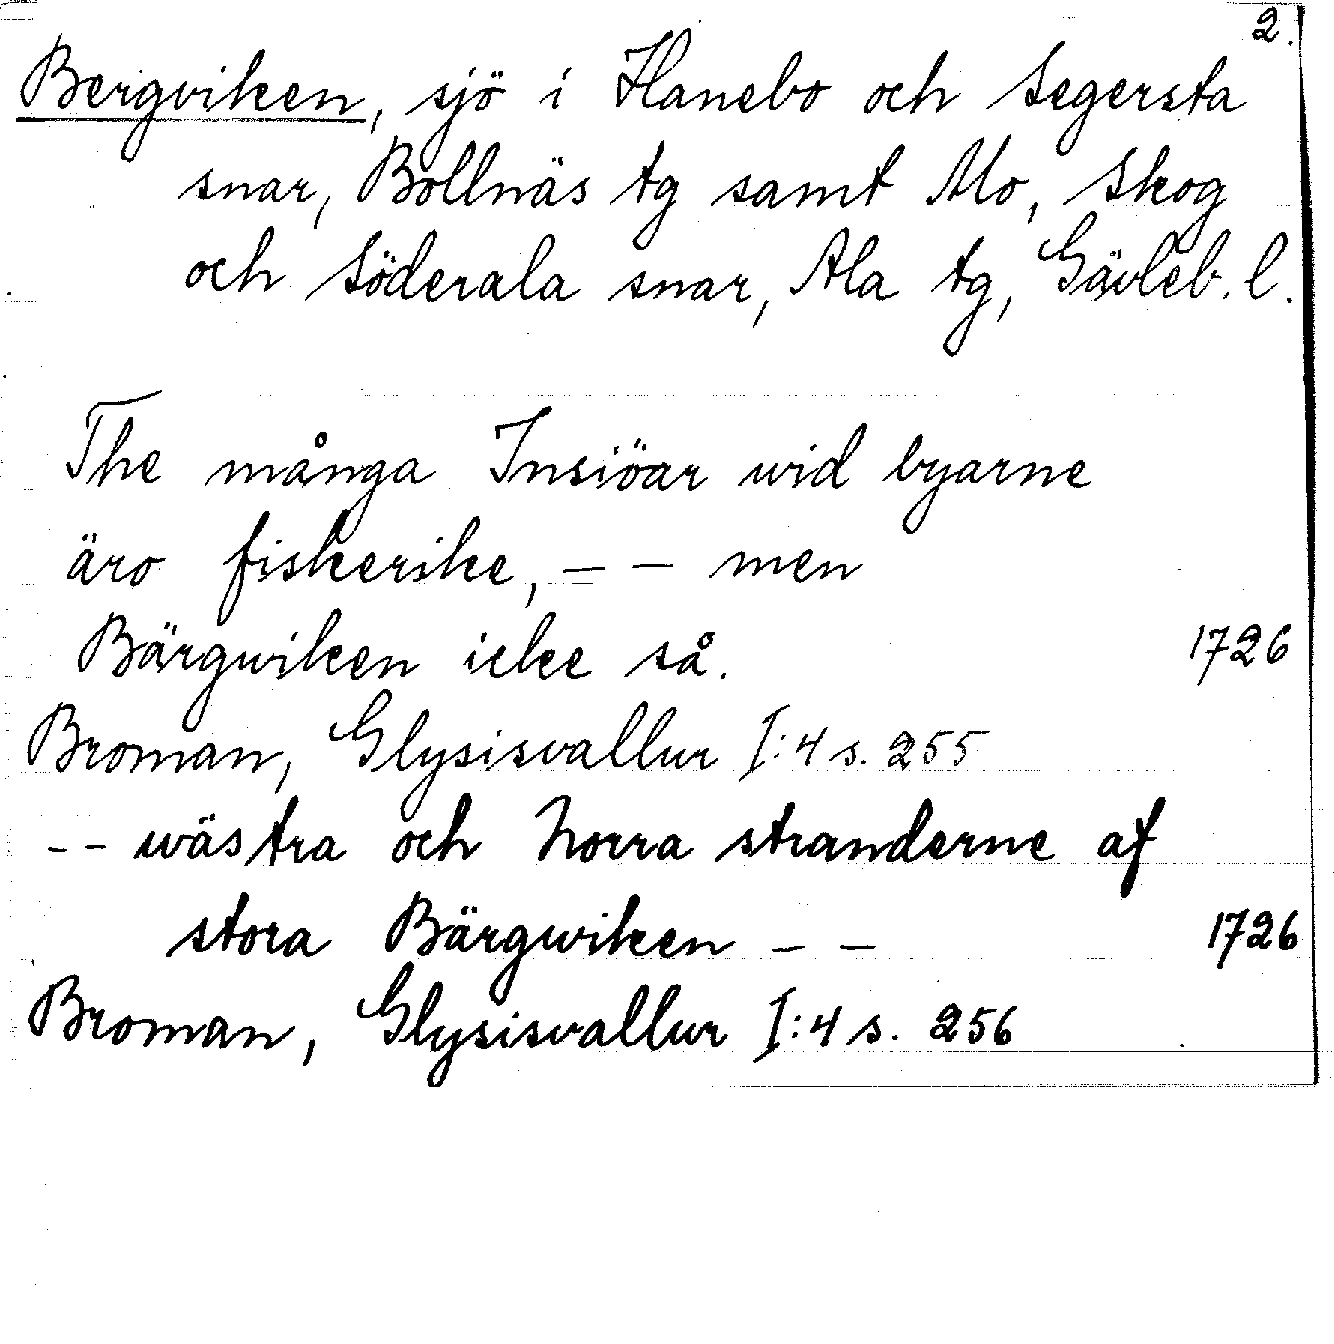 2.
Bergviken, sjö i Hanebo och Segersta
snar, Bollnäs tg samt Mo, Skog
och Söderala snar, Ala tg, Gävleb. l.
The många Insiöar wid byarne
äro fiskerike, – – men
Bärgwiken icke så. 1726
Broman, Glysisvallur I:4 s. 255
-- wästra och Norra stranderne af
stora Bärgwiken – – 1726
Broman, Glysisvallur I:4 s. 256